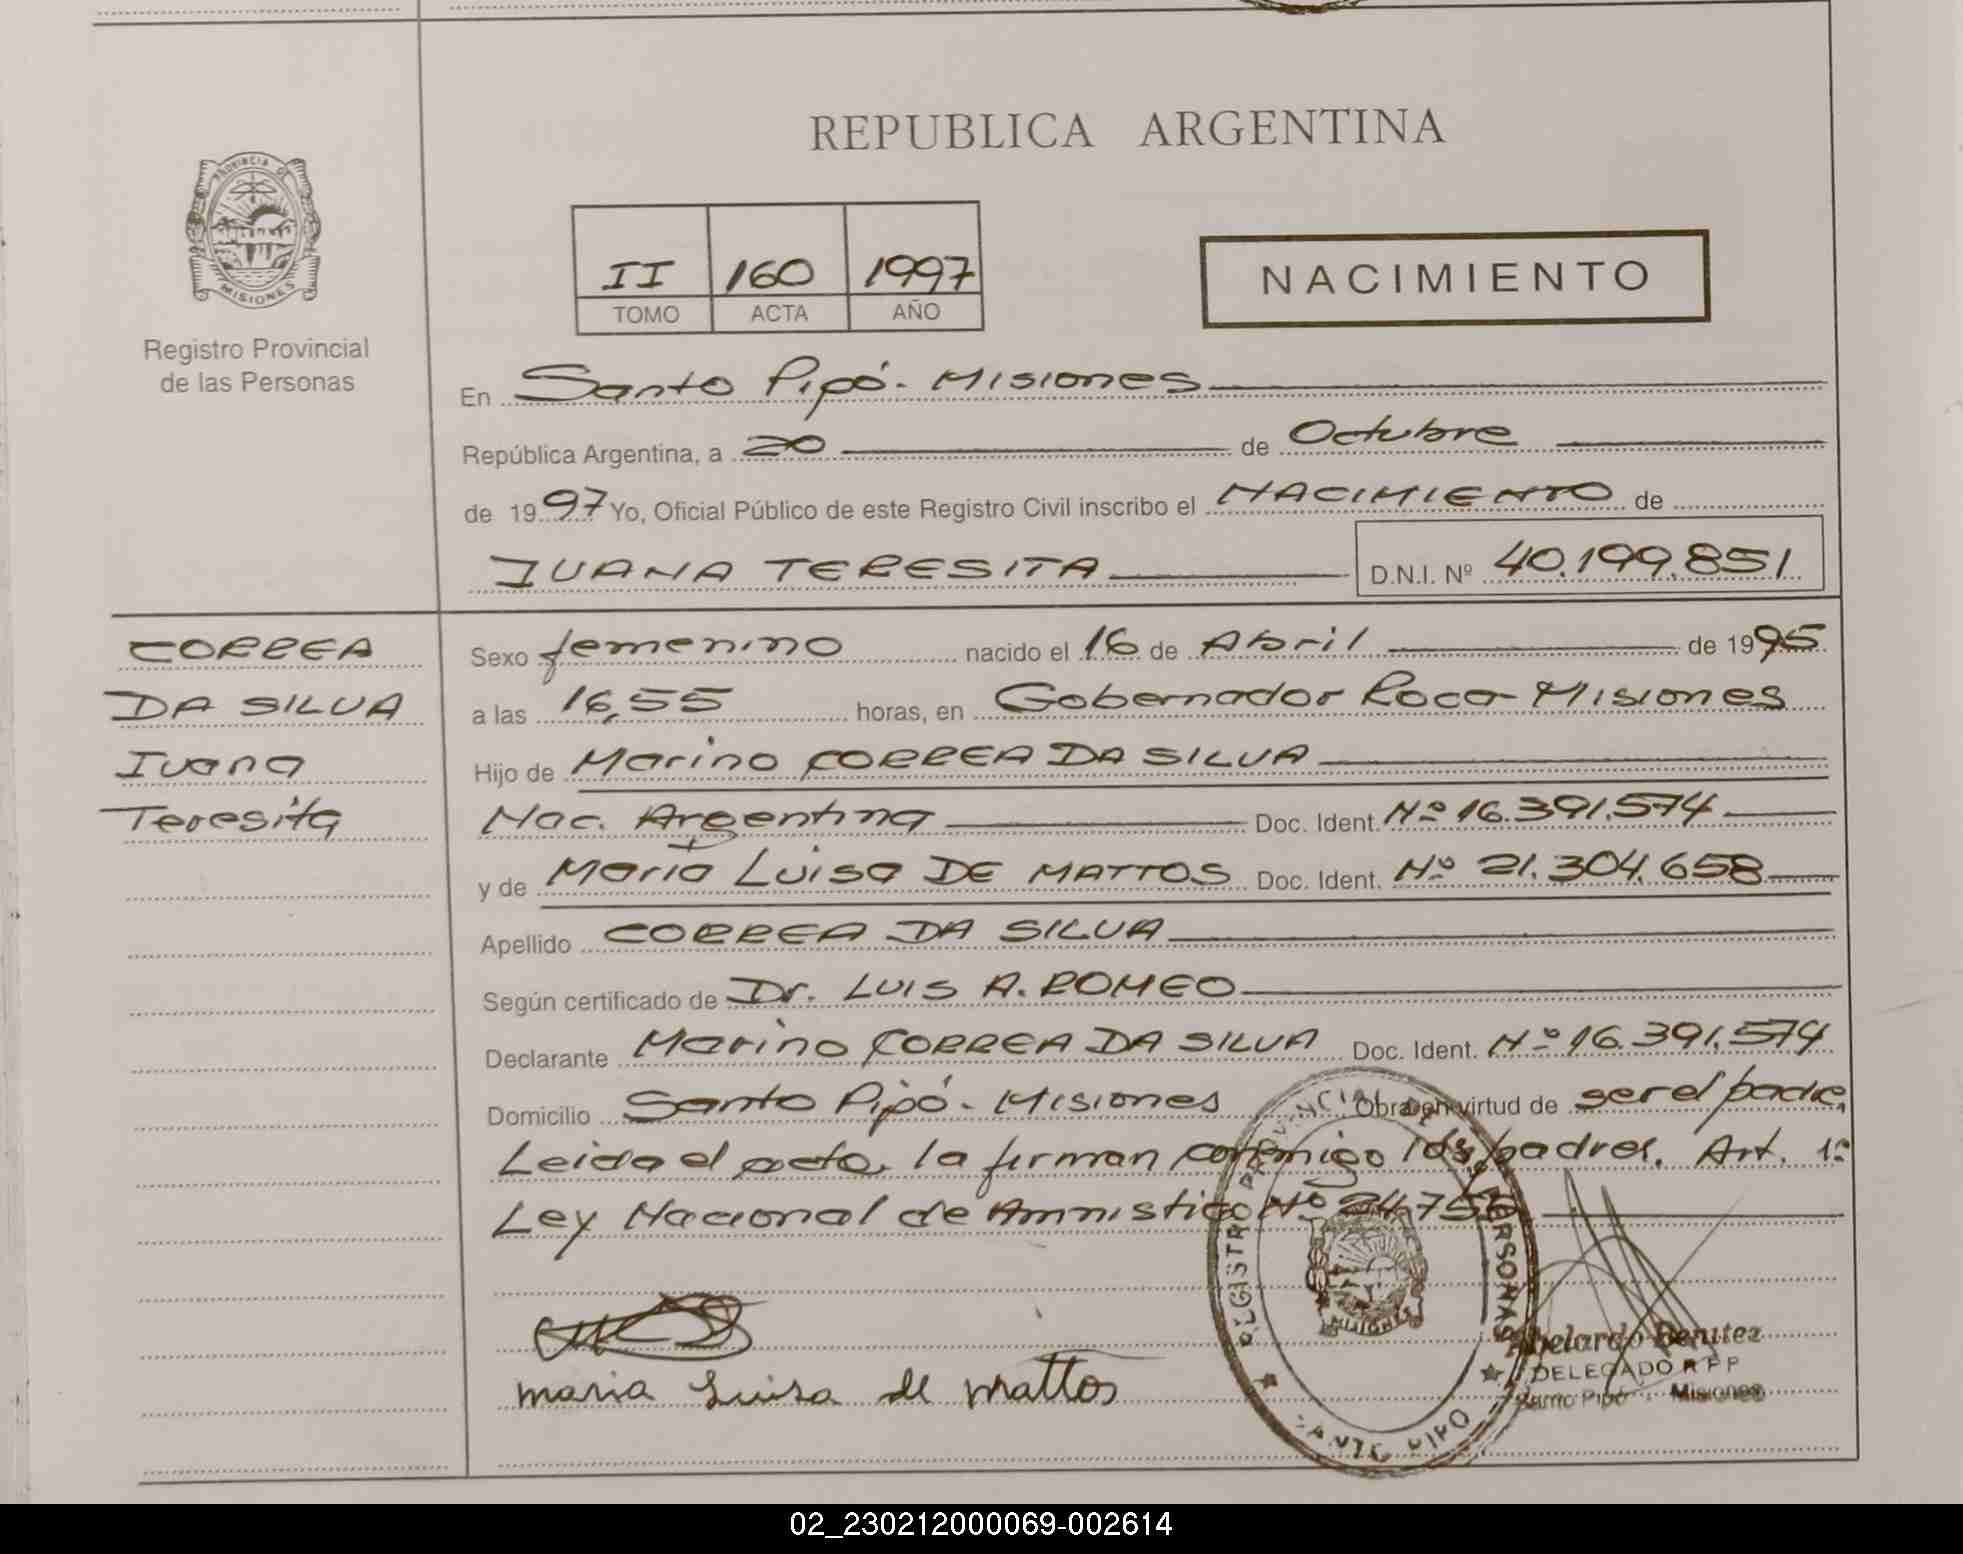 REPUBLICA ARGENTINA
PROVINCIA DE
MISIONES
Registro Provincial
de las Personas
II 160 1997
TOMO ACTA AÑO
NACIMIENTO
En Santo Pipó - Misiones
República Argentina, a 20 de Octubre
de 1997 Yo, Oficial Público de este Registro Civil inscribo el NACIMIENTO de
JUANA TERESITA D.N.I. Nº 40.199.851
CORREA
DA SILVA
Juana
Teresita
Sexo femenino nacido el 16 de Abril de 1995
a las 16,55 horas, en Gobernador Roca - Misiones
Hijo de Marino CORREA DA SILVA
Nac. Argentina Doc. Ident. Nº 16.391.574
y de María Luisa DE MATTOS Doc. Ident. Nº 21.304.658
Apellido CORREA DA SILVA
Según certificado de Dr. LUIS A. ROMEO
Declarante Marino CORREA DA SILVA Doc. Ident. Nº 16.391.574
Domicilio Santo Pipó - Misiones Obra en virtud de ser el padre,
Leida el acta, la firman conmigo los padres. Art. 1º
Ley Nacional de Amnistia Nº 24.755
maria Luisa de mattos
REGISTRO PROVINCIAL DE LAS PERSONAS
MISIONES
SANTO PIPO
Abelardo Benitez
DELEGADO R P P
Santo Pipó - Misiones
02_230212000069-002614